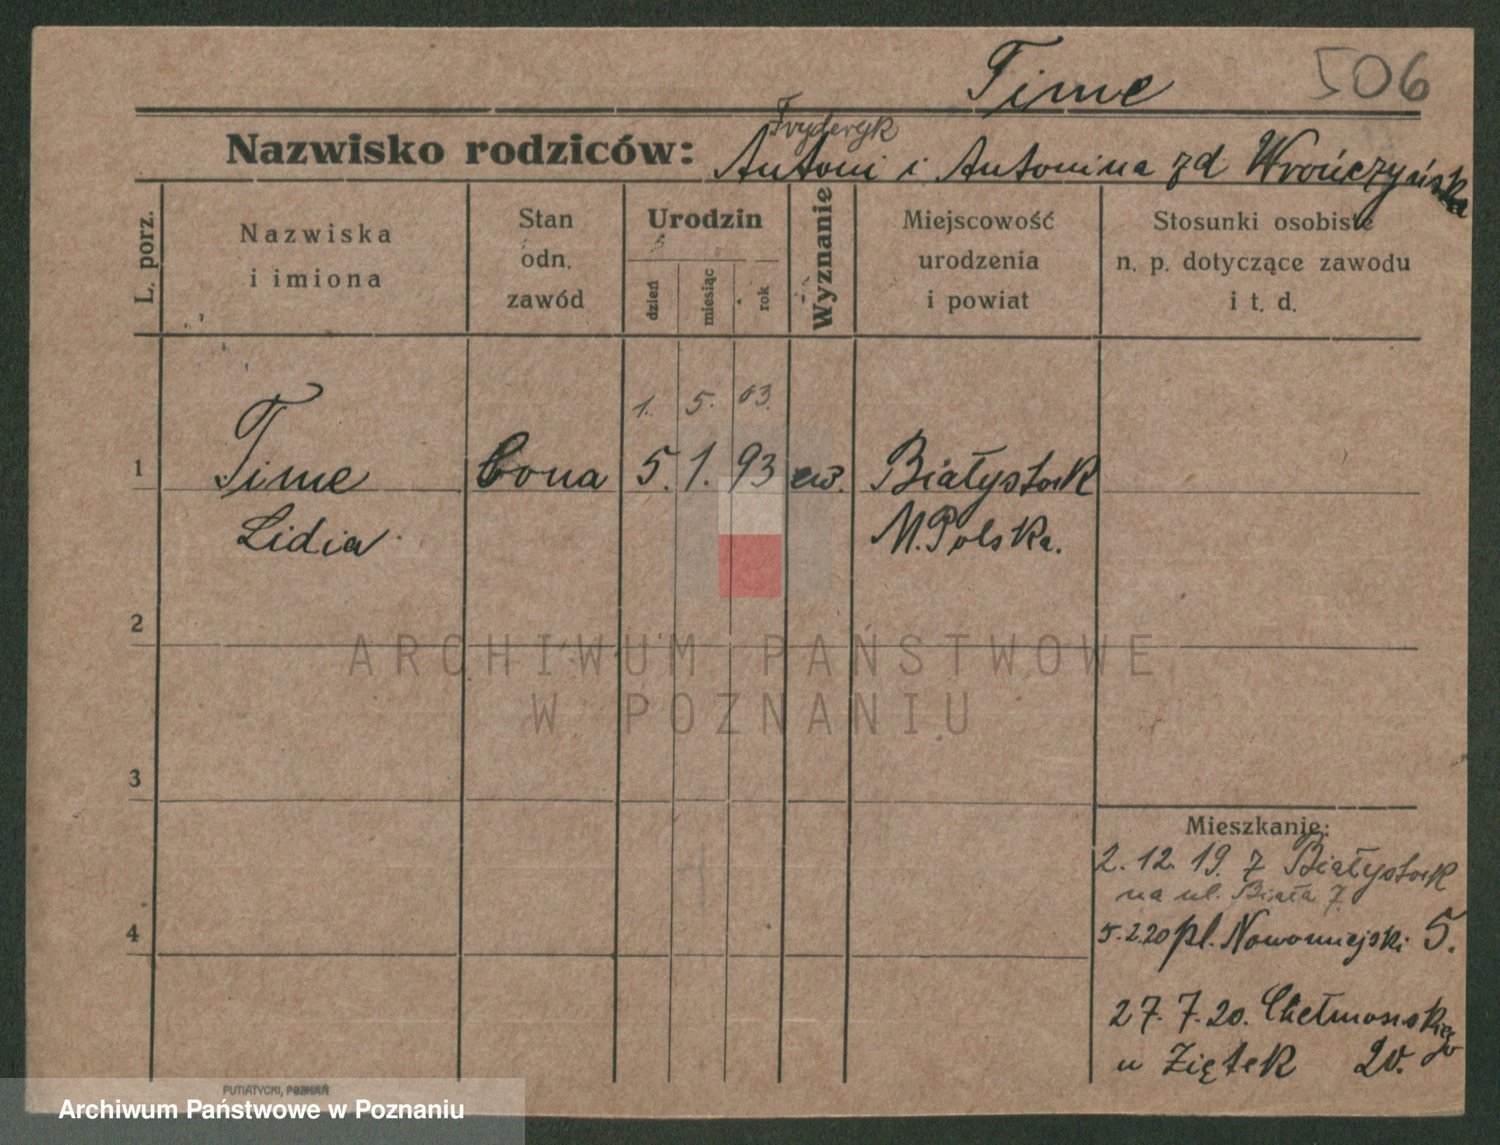 Time 506
Fryderyk
Nazwisko rodziców: Antoni i Antonina zd Wrończyńska
L. porz.
Nazwiska
i imiona
Stan
odn.
zawód
Urodzin
dzień
miesiąc
rok
Wyznanie
Miejscowość
urodzenia
i powiat
Stosunki osobiste
n. p. dotyczące zawodu
i t. d.
1. 5. 03.
1 Time Bona 5. 1. 93 ew. Białystok
Lidia M. Polska.
2
ARCHIWUM PAŃSTWOWE
W POZNANIU
3
Mieszkanie:
2. 12. 19. z Białystok
na ul. Biała 7.
4
5.2.20 pl. Nowomiejski 5.
27. 7. 20. Chełmońskiego
u Ziętek 20.
PUTIATYCKI, POZNAŃ
Archiwum Państwowe w Poznaniu